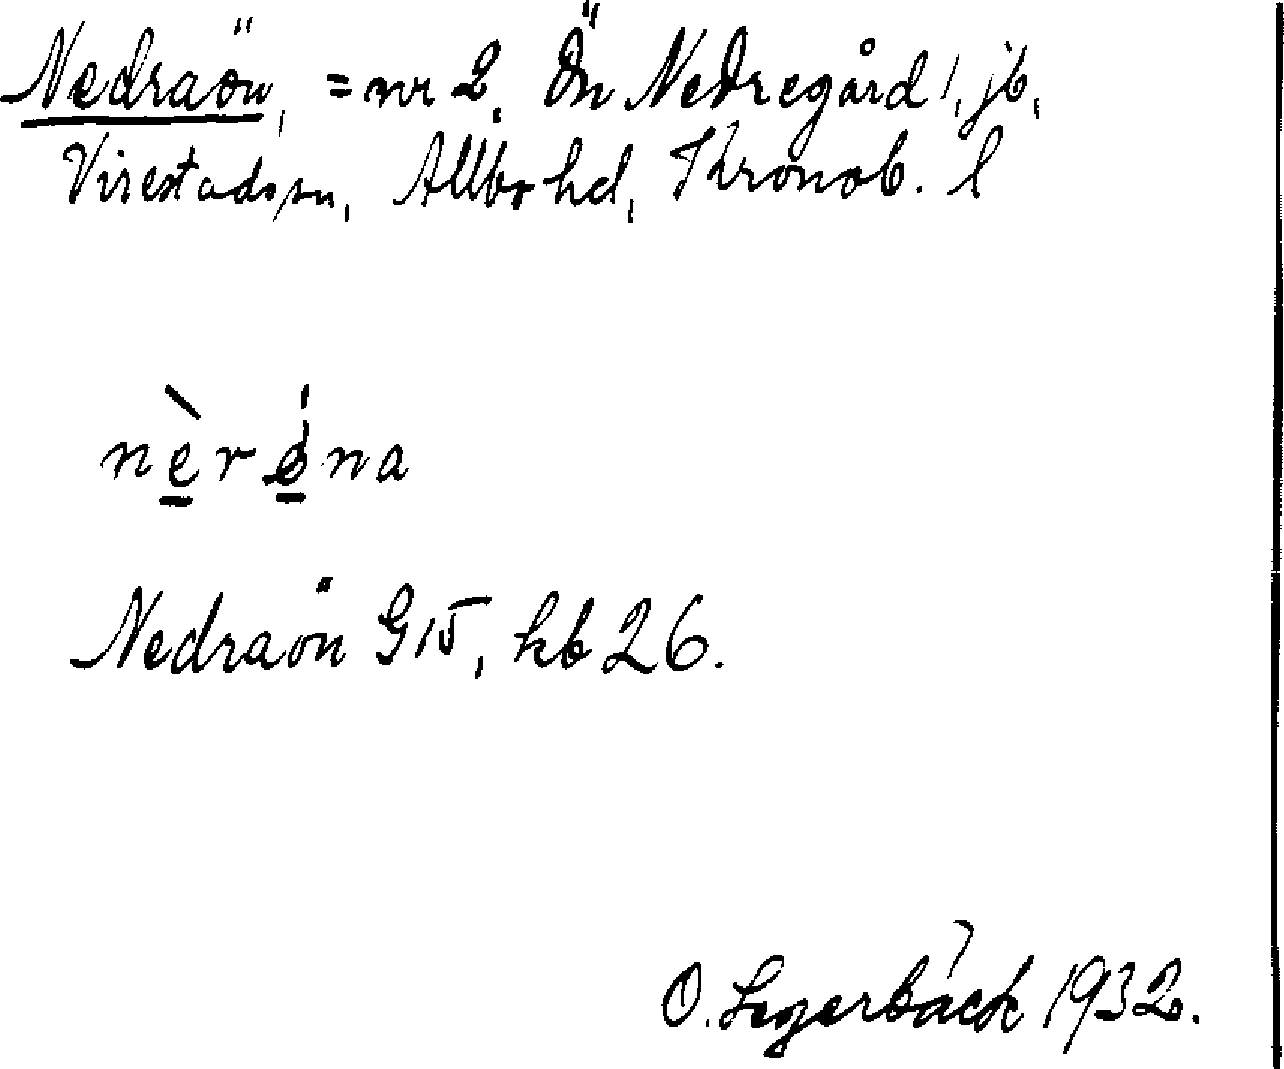 Nedraön, = nr 2, Ön Nedregård, jb,
Virestads sn, Allbo hd, Kronob. l
Nedraön G15, hb 26.
O. Segerbäck 1932.